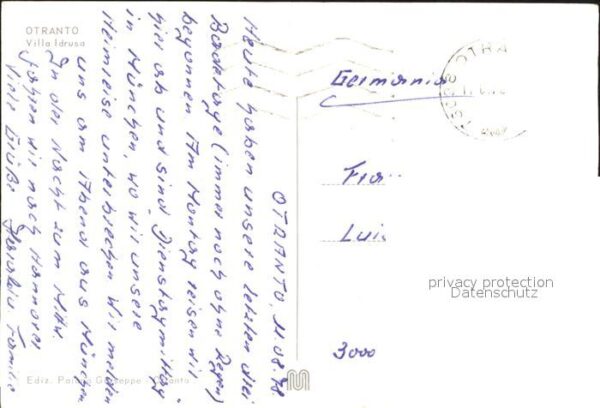 OTRANTO
Villa Idrusa
OTRANTO, 11.08.78
Heute haben unsere letzten drei
Badetage (immer noch ohne Regen)
begonnen. Am Montag reisen wir
hier ab und sind Dienstagmittag
in München, wo wir unsere
Heimreise unterbrechen. Wir melden
uns am Abend aus München.
In der Nacht zum Mittw.
fahren wir nach Hannover
Viele Grüße Familie
Germania
OTRA
Frau
Luis
3000
privacy protection
Datenschutz
Ediz. Giuseppe - Otranto